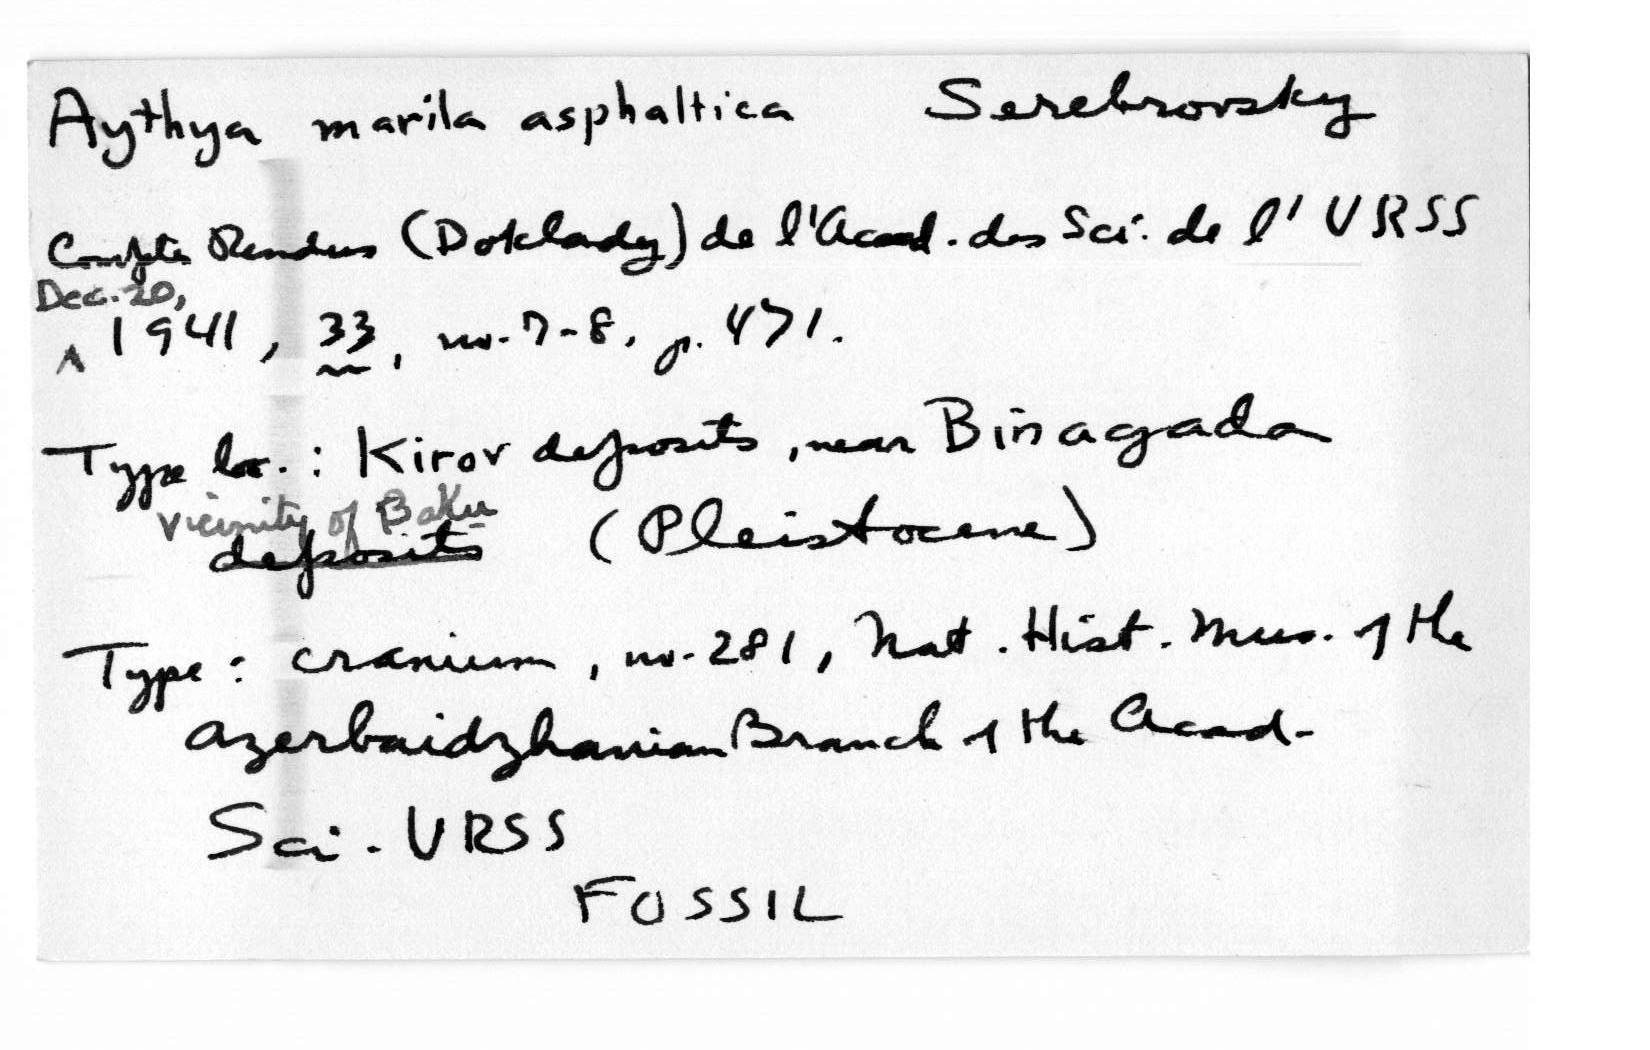 Aythya marila asphaltica Serebrovsky
Compte Rendus (Doklady) de l'Acad. des Sci. de l' URSS
Dec. 20,
^ 1941, 33, no. 7-8, p. 471.
Type loc. : Kirov deposits, near Binagada
vicinity of Baku
deposits (Pleistocene)
Type : cranium, no. 281, Nat. Hist. Mus. of the
Azerbaidzhanian Branch of the Acad.
Sci. URSS
FOSSIL